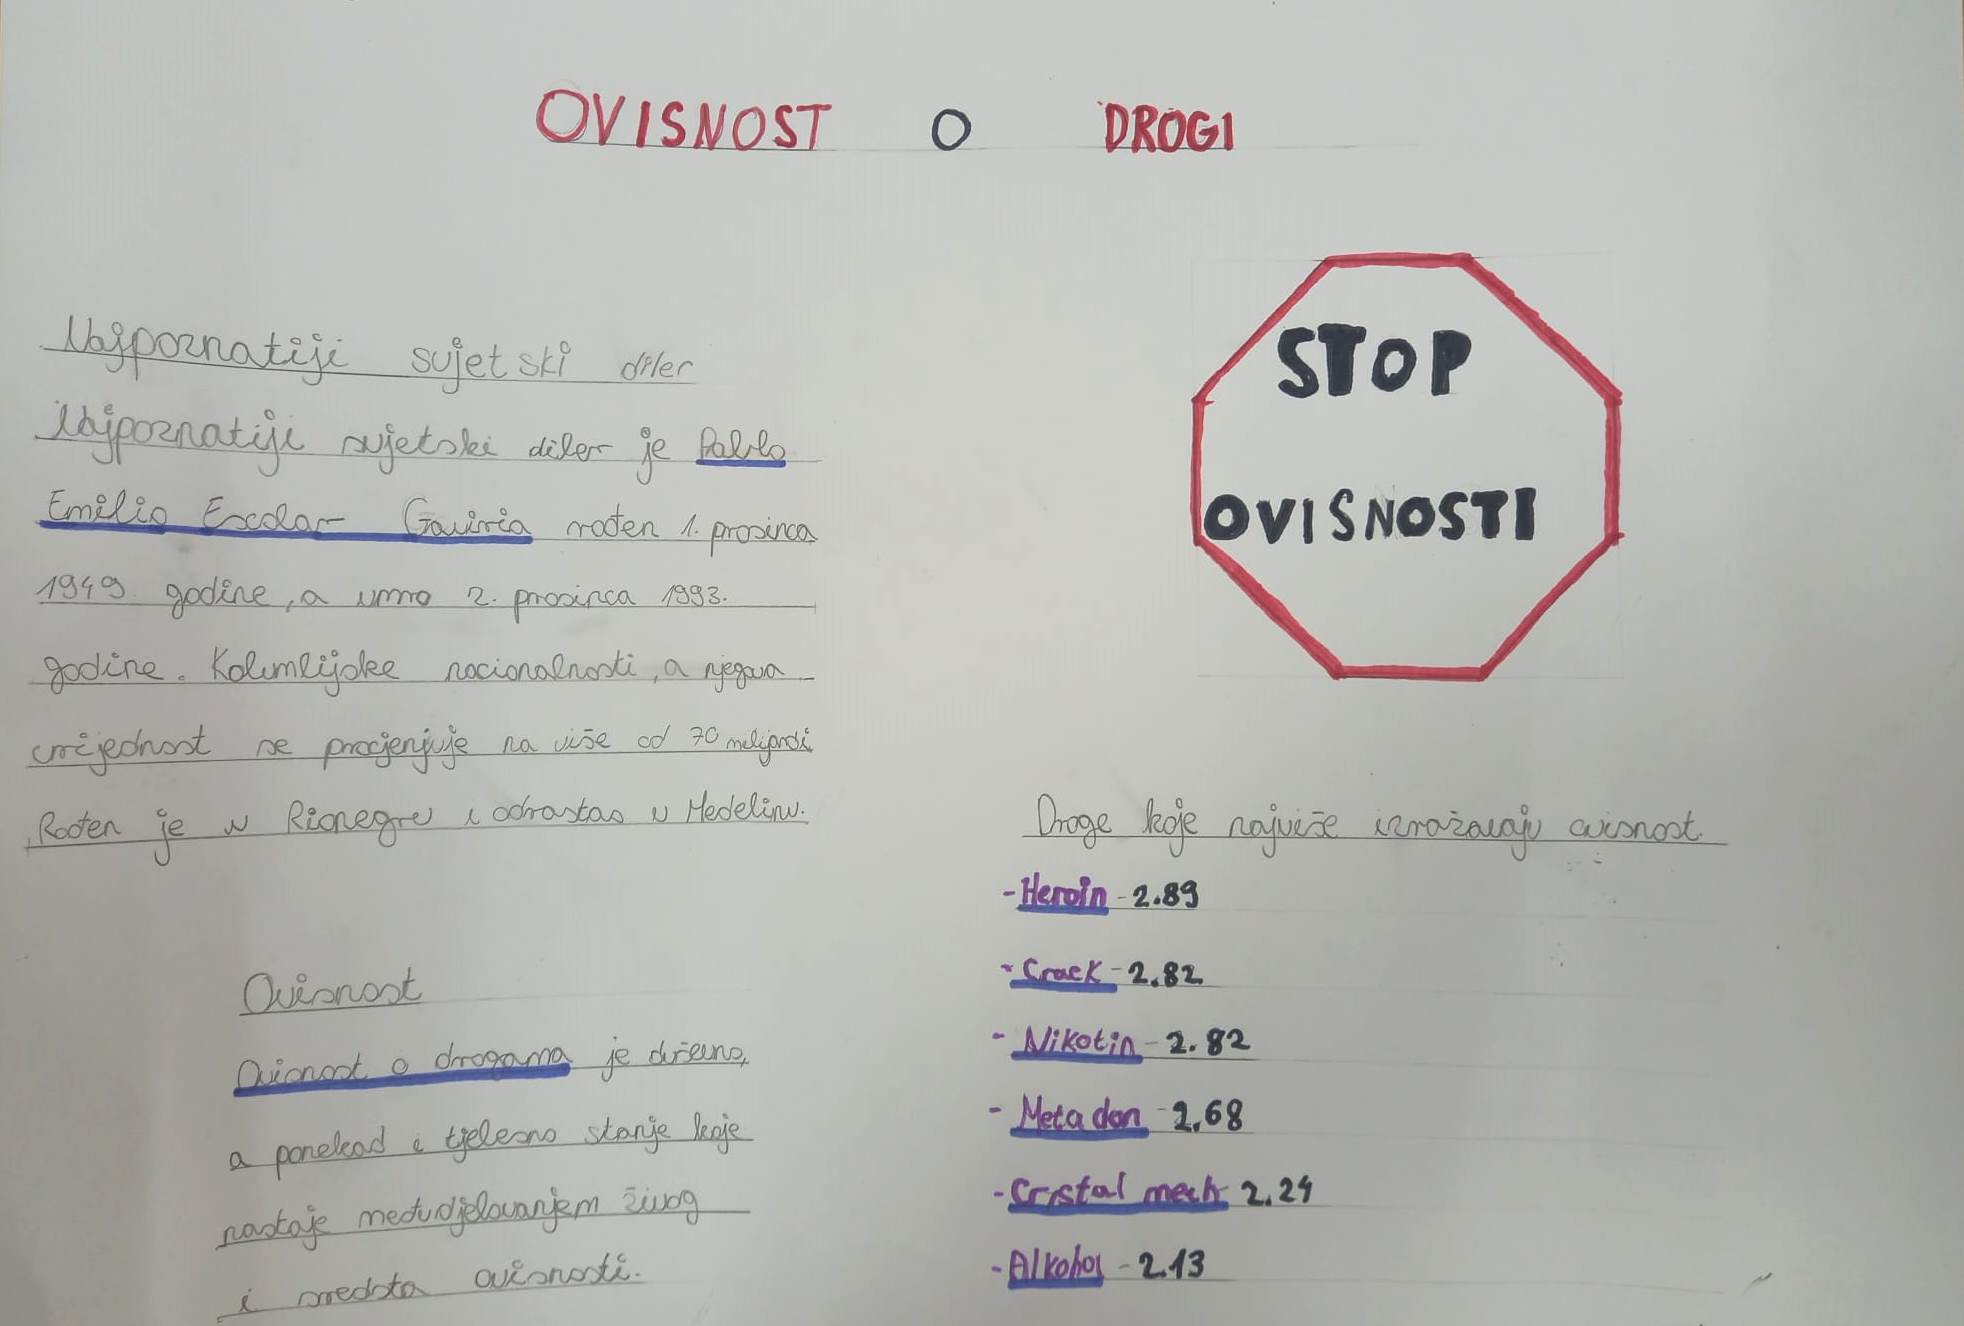 OVISNOST O DROGI
Najpoznatiji svjetski diler
Najpoznatiji svjetski diler je Pablo
Emilio Escobar Gaviria rođen 1. prosinca
1949. godine, a umro 2. prosinca 1993.
godine. Kolumbijske nacionalnosti, a njegova
vrijednost se procjenjuje na više od 70 milijardi
Rođen je u Rionegru i odrastao u Medelinu.
Ovisnost
Ovisnost o drogama je duševno,
a ponekad i tjelesno stanje koje
nastaje međudjelovanjem živog
i sredsta ovisnosti.
STOP
OVISNOSTI
Droge koje najviše izražavaju ovisnost.
- Heroin - 2.89
- Crack - 2.82
- Nikotin - 2.82
- Metadon - 2.68
- Cristal meth 2.24
- Alkohol - 2.13